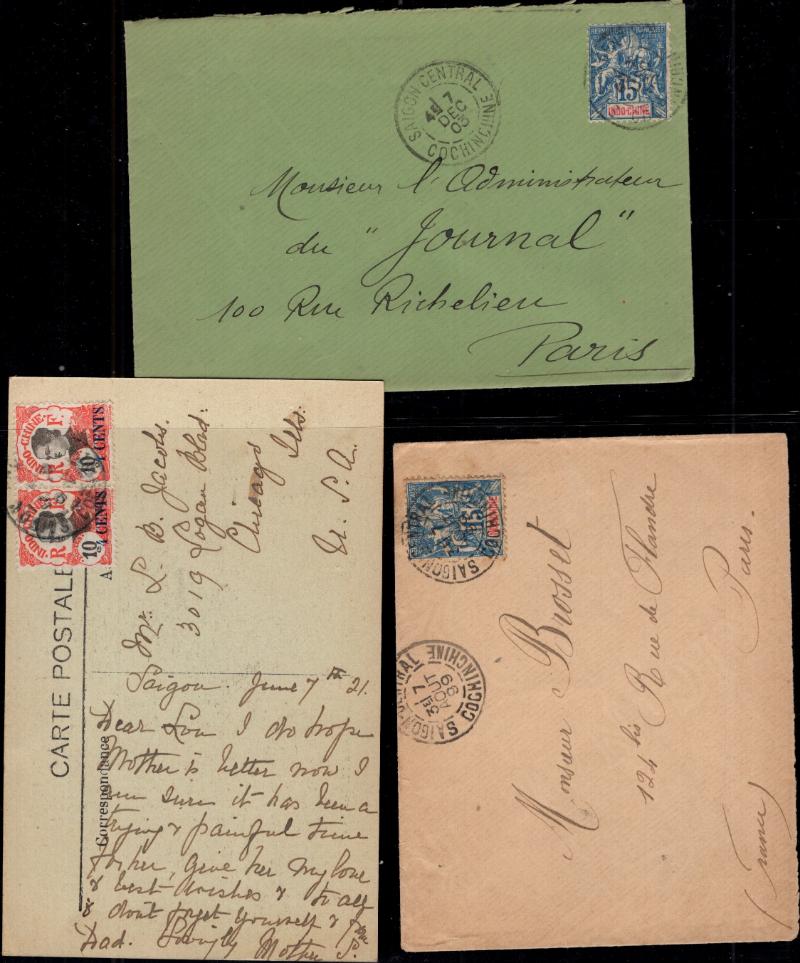 SAIGON CENTRAL
7
DEC
03
COCHINCHINE
15
INDO-CHINE
Monsieur l'Administrateur
du "Journal"
100 Rue Richelieu
Paris
INDO-CHINE
R F
10
4 CENTS
INDO-CHINE
R F
10
4 CENTS
CARTE POSTALE
Correspondance
A
Mr. L. B. Jacobs.
3019 Logan Blvd.
Chicago Ills.
U. S. A.
Saigon. June 7th 21.
Dear Lou I do hope
Mother is better now I
am sure it has been a
trying & painful time
for her, give her my love
& best wishes & to all
& don't forget yourself &
Dad. Lovingly Mother
15
INDO-CHINE
SAIGON CENTRAL
7
AOUT
99
COCHINCHINE
Monsieur Brosset
124 bis Rue de Flandre
Paris.
(France)